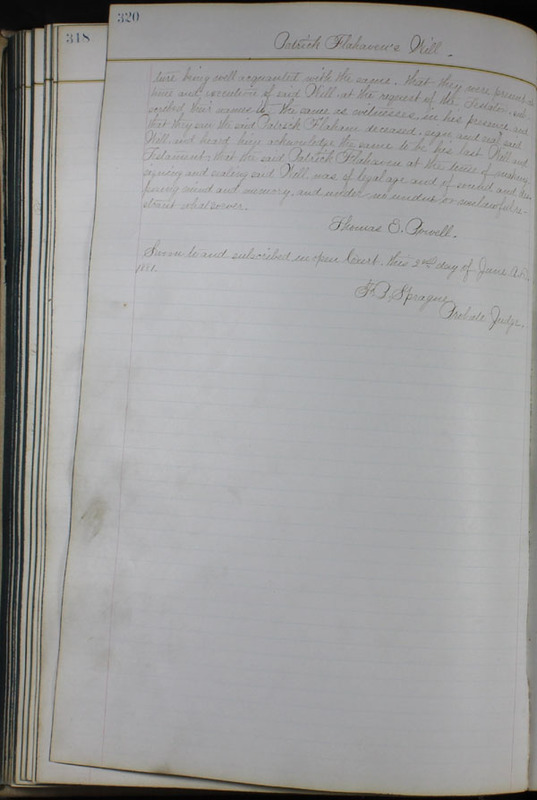 320
318
Patrick Flahaven's Will.
ture being well acquanted with the same. that they were present at
time and execution of said Will at the request of the Testator, sub-
scribed their names to the same as witnesses, in his presence, and
that they saw the said Patrick Flahaven deceased, sign and seal said
Will, and heard him acknowledge the same to be his last Will and
Testament, that the said Patrick Flahaven at the time of making
signing and sealing said Will, was of legal age and of sound and dis-
posing mind and memory, and under no undue or unlawful re-
straint whatsoever.
Thomas E. Powell.
Sworn to and subscribed in open Court, this 2nd day of June A.D.
Sprague
Probate Judge.